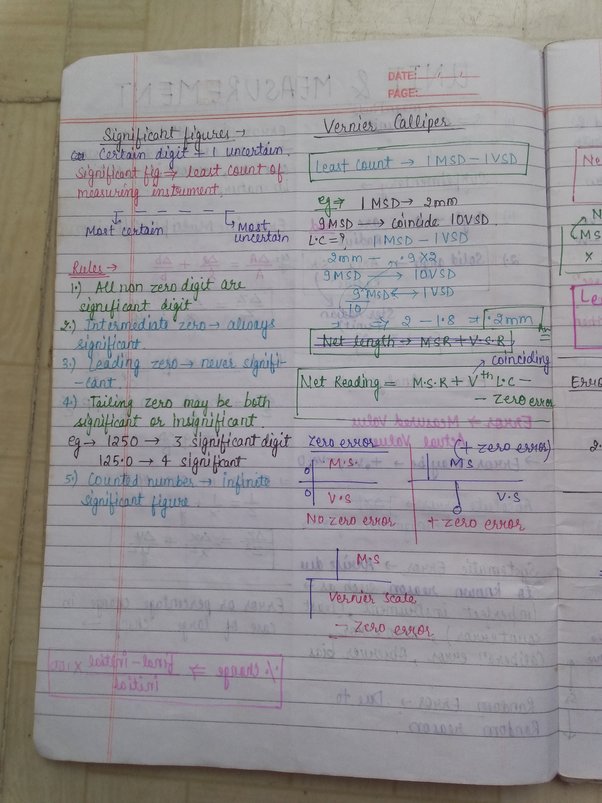 DATE:
PAGE:
Significant figures →
Certain digit + 1 uncertain.
Significant fig → least count of
measuring instrument.
Most certain
Most
uncertain
Rules →
1.) All non zero digit are
significant digit
2.) Intermediate zero → always
significant.
3.) Leading zero → never signifi-
-cant.
4.) Tailing zero may be both
significant or insignificant.
eg → 1250 → 3 significant digit
125.0 → 4 significant
5.) Counted number → infinite
significant figure.
Vernier Calliper
Least count → 1MSD - 1VSD
eg → 1 MSD → 2mm
9MSD → coincide 10VSD
L.C = ? 1MSD - 1VSD
2mm - .9×2
9MSD → 10VSD
9 MSD → 1VSD
10
⇒ 2 - 1.8 ⇒ .2mm
Net length → MSR + V.S.R
coinciding
Net Reading = M.S.R + Vth L.C -
- zero error
Zero error
(+ zero error)
0 M.S.
0 V.S
No zero error
MS
0 V.S
+ zero error
M.S
Vernier Scale
- zero error
Ne
N
(MS
×
Le
Erro
2.